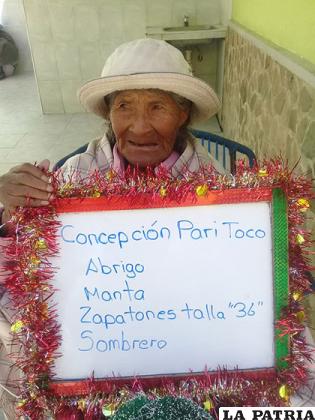 Concepción Pari Toco
Abrigo
Manta
Zapatones talla "36"
Sombrero
LA PATRIA